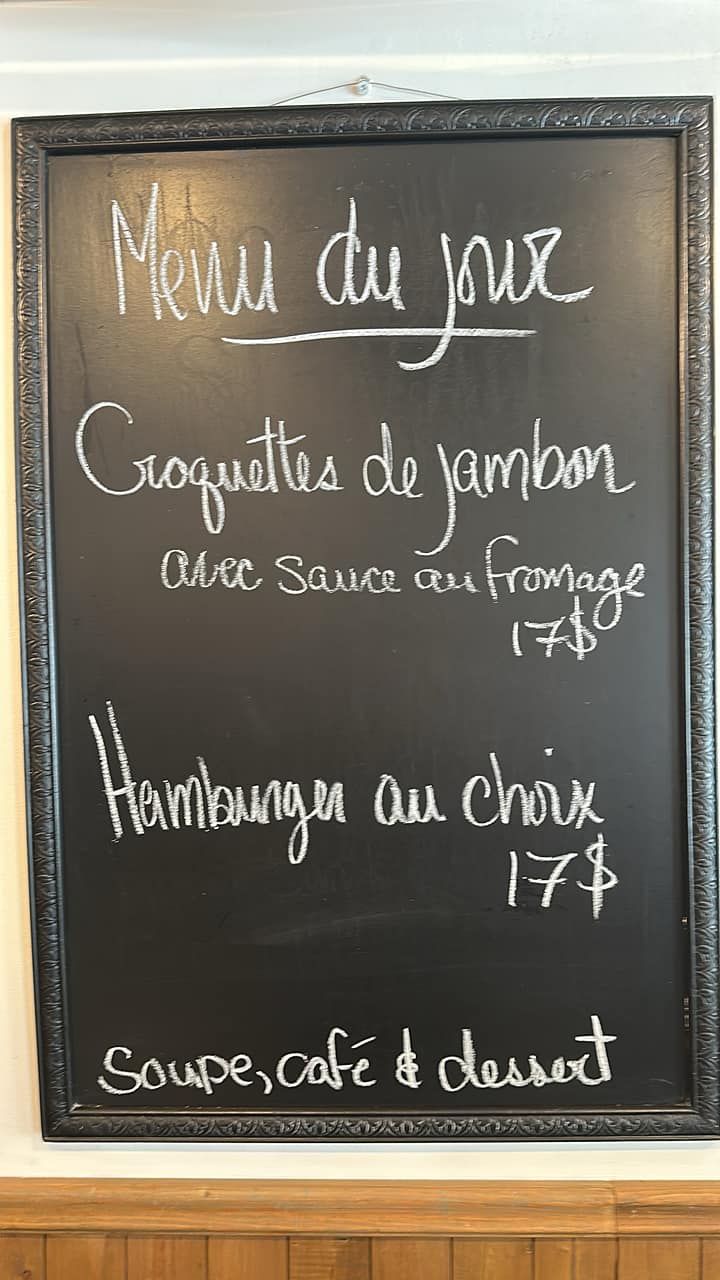 Menu du jour
Croquettes de jambon
avec sauce au fromage
17$
Hamburger au choix
17$
Soupe, café & dessert